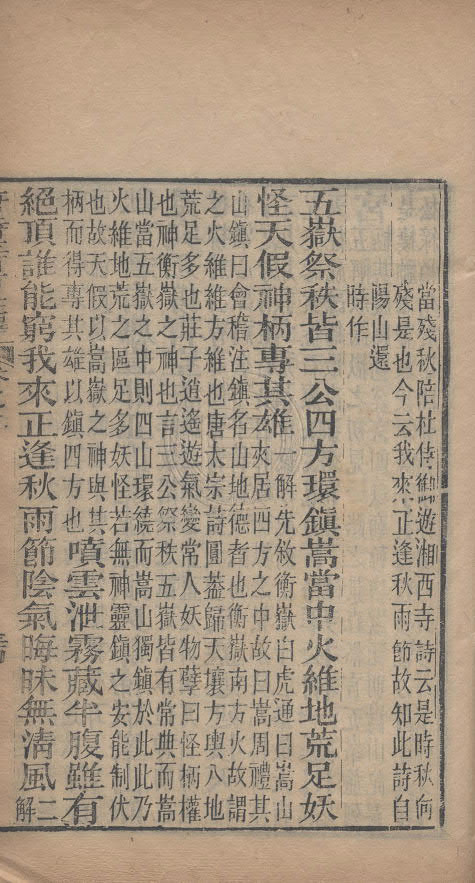 當殘秋陪杜侍御遊湘西寺詩云是時秋向
殘是也今云我來正逢秋雨節故知此詩自
陽山還
時作
五嶽祭秩皆三公四方環鎮嵩當中火維地荒足妖
怪天假神柄專其雄
一解先敘衡嶽白虎通曰嵩山
夾居四方之中故曰嵩周禮其
山鎮曰會稽注鎮名山地德者也衡嶽南方火故謂
之火維維方維也唐太宗詩圓蓋歸天壤方輿八地
荒足多也莊子逍遙遊氣變常人妖物孽曰怪柄權
也神衡嶽之神也言三公祭秩五嶽皆有常典而嵩
山當五嶽之中則四山環繞而嵩山獨鎮於此此乃
火維地荒之區足多妖怪若無神靈鎮之安能制伏
也故天假以嵩嶽之神與其
柄而得專其雄以鎮四方也
噴雲泄霧藏半腹雖有
絕頂誰能窮我來正逢秋雨節陰氣晦昧無清風二解